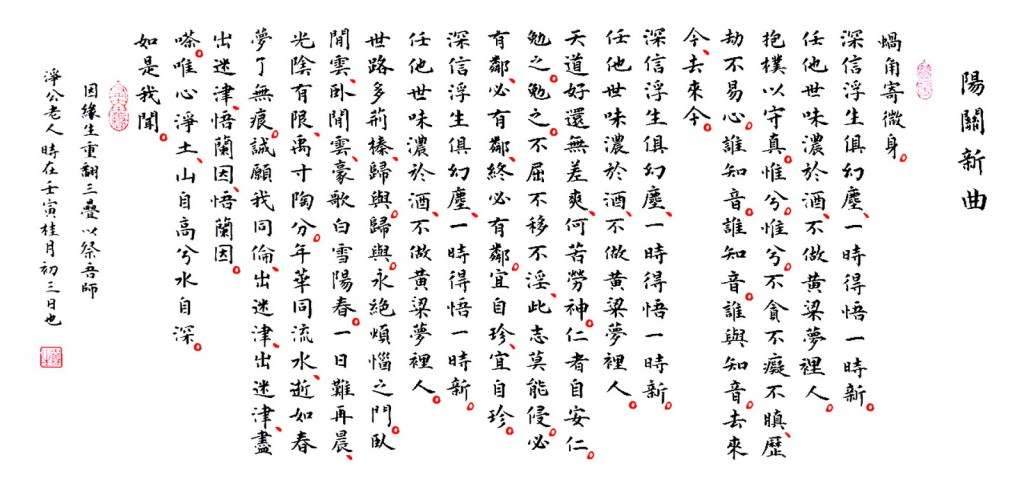 陽關新曲
蝸角寄微身。
深信浮生俱幻塵、一時得悟一時新。
任他世味濃於酒、不做黃粱夢裡人。
抱樸以守真。惟兮、惟兮。不貪不癡不瞋、歷
劫不易心。誰知音。誰知音。誰與知音。去來
今、去來今。
深信浮生俱幻塵、一時得悟一時新。
任他世味濃於酒、不做黃粱夢裡人。
天道好還無差爽、何苦勞神。仁者自安仁。
勉之。勉之。不屈不移不淫、此志莫能侵。必
有鄰、必有鄰、終必有鄰。宜自珍、宜自珍。
深信浮生俱幻塵、一時得悟一時新。
任他世味濃於酒、不做黃粱夢裡人。
世路多荊榛、歸與。歸與。永絕煩惱之門。臥
閒雲、臥閒雲、豪歌白雪陽春。一日難再晨、
光陰有限、禹寸陶分。年華同流水、逝如春
夢了無痕。誠願我同倫、出迷津、出迷津、盡
出迷津、悟蘭因、悟蘭因。
嗏。唯心淨土、山自高兮水自深。
如是我聞。
因緣生重翻三疊以祭吾師
淨公老人時在壬寅桂月初三日也